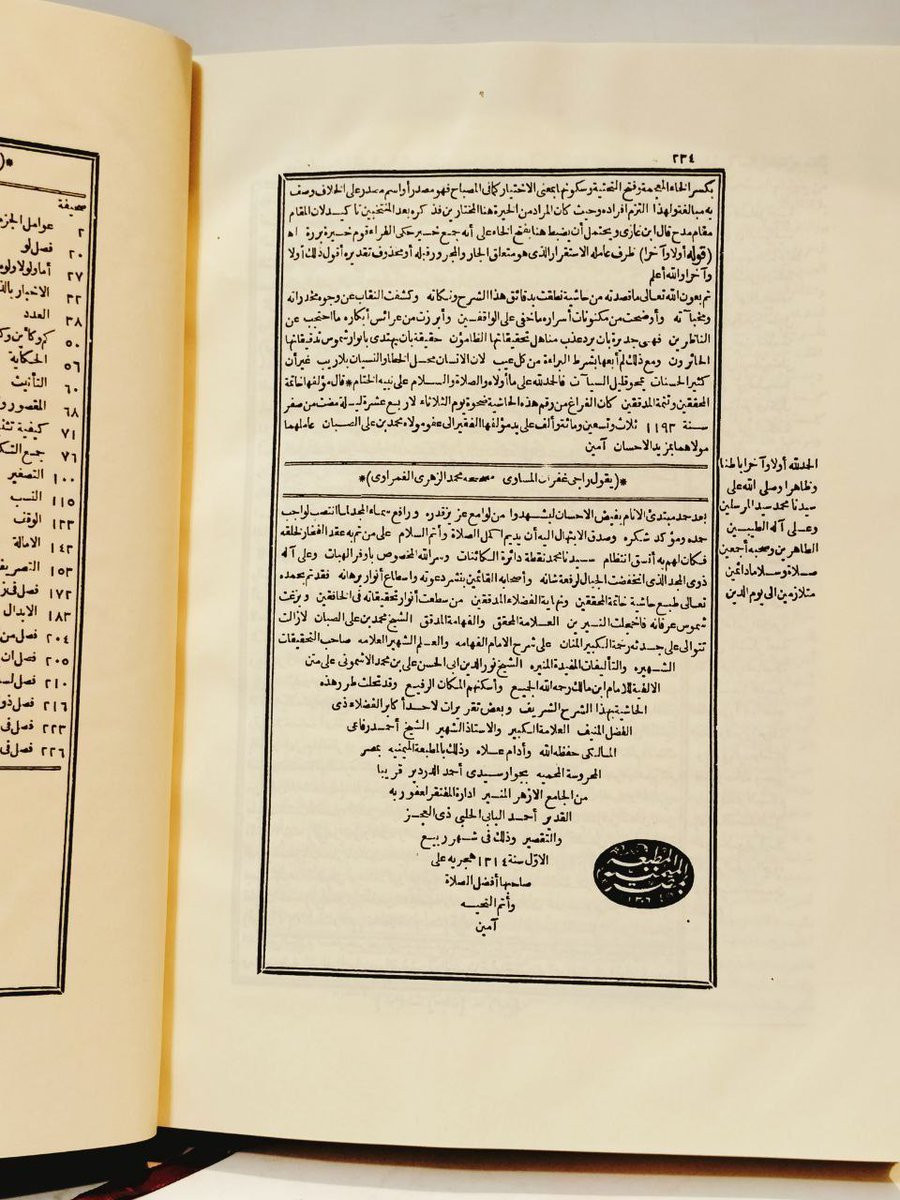 ٢٣٤
بكسر الخاء المعجمة وفتح التحتية وسكونها بمعنى الاختيار كما فى المصباح فهو مصدر أو اسم مصدر على الخلاف وصف
به مبالغة ولهذا التزم افراده وحيث كان المراد من الخيرة هنا المختارين فذكره بعد المنتخبين تأكيد لان المقام
مقام مدح قال ابن غازى ويحتمل أن يضبط هنا بفتح الخاء على أنه جمع خير حكى الفراء قوم خيرة بررة اه
(قوله أولا وآخرا) ظرف عامله الاستقرار الذى هو متعلق الجار والمجرور قبله أو محذوف تقديره أقول ذلك أولا
وآخرا والله أعلم
تم بعون الله تعالى ما قصدته من حاشية نطقت بدقائق هذا الشرح ونكاته وكشفت النقاب عن وجوه مخدراته
ومخبآته وأوضحت من مكنونات أسراره ما خفى على الواقفين وأبرزت من عرائس أبكاره ما احتجب عن
الناظرين فهى جديرة بان يرد عذب مناهل تحقيقاتها الظامؤن حقيقة بان يهتدى بانوار شموس تدقيقاتها
الحائرون ومع ذلك لم أبعها بشرط البراءة من كل عيب لان الانسان محل الخطا والنسيان بلا ريب غير أن
كثير الحسنات يمحو قليل السيآت فالحمد لله على ما أولاه والصلاة والسلام على نبيه الختام * قال مؤلفها خاتمة
المحققين وتتمة المدققين كان الفراغ من رقم هذه الحاشية ضحوة يوم الثلاثاء لاربع عشرة ليلة مضت من صفر
سنة ١١٩٣ ثلاث وتسعين ومائة وألف على يد مؤلفها الفقير الى عفو مولاه محمد بن على الصبان عاملهما
مولاهما بمزيد الاحسان آمين
*(يقول راجى غفران المساوى مصححه محمد الزهرى الغمراوى)*
بعد حمد مبتدئ الانام بفيض الاحسان ليشهدوا من لوامع عزيز قدره ورافع سماء المحدا ما انتصب لواجب
حمده ومؤكد شكره وصدق الابتهال اليه أن يديم أكمل الصلاة وأتم السلام على من تم به عقد الفخار لخلقه
فكان لهم به أنسق انتظام سيدنا محمد نقطة دائرة الكائنات وسر الله المخصوص باوفر الهبات وعلى آله
ذوى المجد الذى انخفضت الجبال لرفعة شانه وأصحابه القائمين بنشر دعوته واسطاع أنوار برهانه فقد تم بحمده
تعالى طبع حاشية خاتمة المحققين ونهاية الفضلاء المدققين من سطعت أنوار تحقيقاته فى الخافقين وبزغت
شموس عرفانه فاخجلت النيرين العلامة المحقق والفهامة المدقق الشيخ محمد بن على الصبان لازالت
تتوالى على جدثه رحمة الكبير المنان على شرح الامام الفهامه والعلم الشهير العلامه صاحب التحقيقات
الشهيره والتأليفات المفيدة المنيره الشيخ نور الدين ابى الحسن على بن محمد الاشمونى على متن
الالفية للامام ابن مالك رحم الله الجميع وأسكنهم المكان الرفيع وقد تحلت طرر هذه
الحاشية بهذا الشرح الشريف وبعض تقريرات لاحد أكابر الفضلاء ذى
الفضل المنيف العلامة الكبير والاستاذ الشهير الشيخ أحمد رفاعى
المالكى حفظه الله وأدام علاه وذلك بالمطبعة الميمنيه بمصر
المحروسة المحميه بجوار سيدى أحمد الدردير قريبا
من الجامع الازهر المنير ادارة المفتقر لعفو ربه
القدير أحمد البابى الحلبى ذى العجز
والتقصير وذلك فى شهر ربيع
الاول سنة ١٣١٤ هجريه على
صاحبها أفضل الصلاة
وأتم التحيه
آمين
المطبعة
الميمنية
بمصر
١٣٠٦
الحمد لله أولا وآخرا باطنا
وظاهرا وصلى الله على
سيدنا محمد سيد المرسلين
وعلى آله الطيبين
الطاهرين وصحبه أجمعين
صلاة وسلاما دائمين
متلازمين الى يوم الدين
صحيفة
٢ عوامل الجزم
٢٠ فصل لو
٢٧ أما ولولا ولوما
٣٢ الاخبار بالذ
٣٨ العدد
٥٠ كم وكأين وك
٥٦ الحكاية
٦٠ التأنيث
٦٨ المقصور و
٧١ كيفية تث
٧٦ جمع التك
١٠٠ التصغير
١١٥ النسب
١٣٣ الوقف
١٤٣ الامالة
١٥٣ التصريف
١٧٢ فصل فى ز
١٨٣ الابدال
٢٠٤ فصل من
٢٠٥ فصل ان
٢١٠ فصل لس
٢١٦ فصل ذو
٢٢٣ فصل فى
٢٢٦ فصل فى